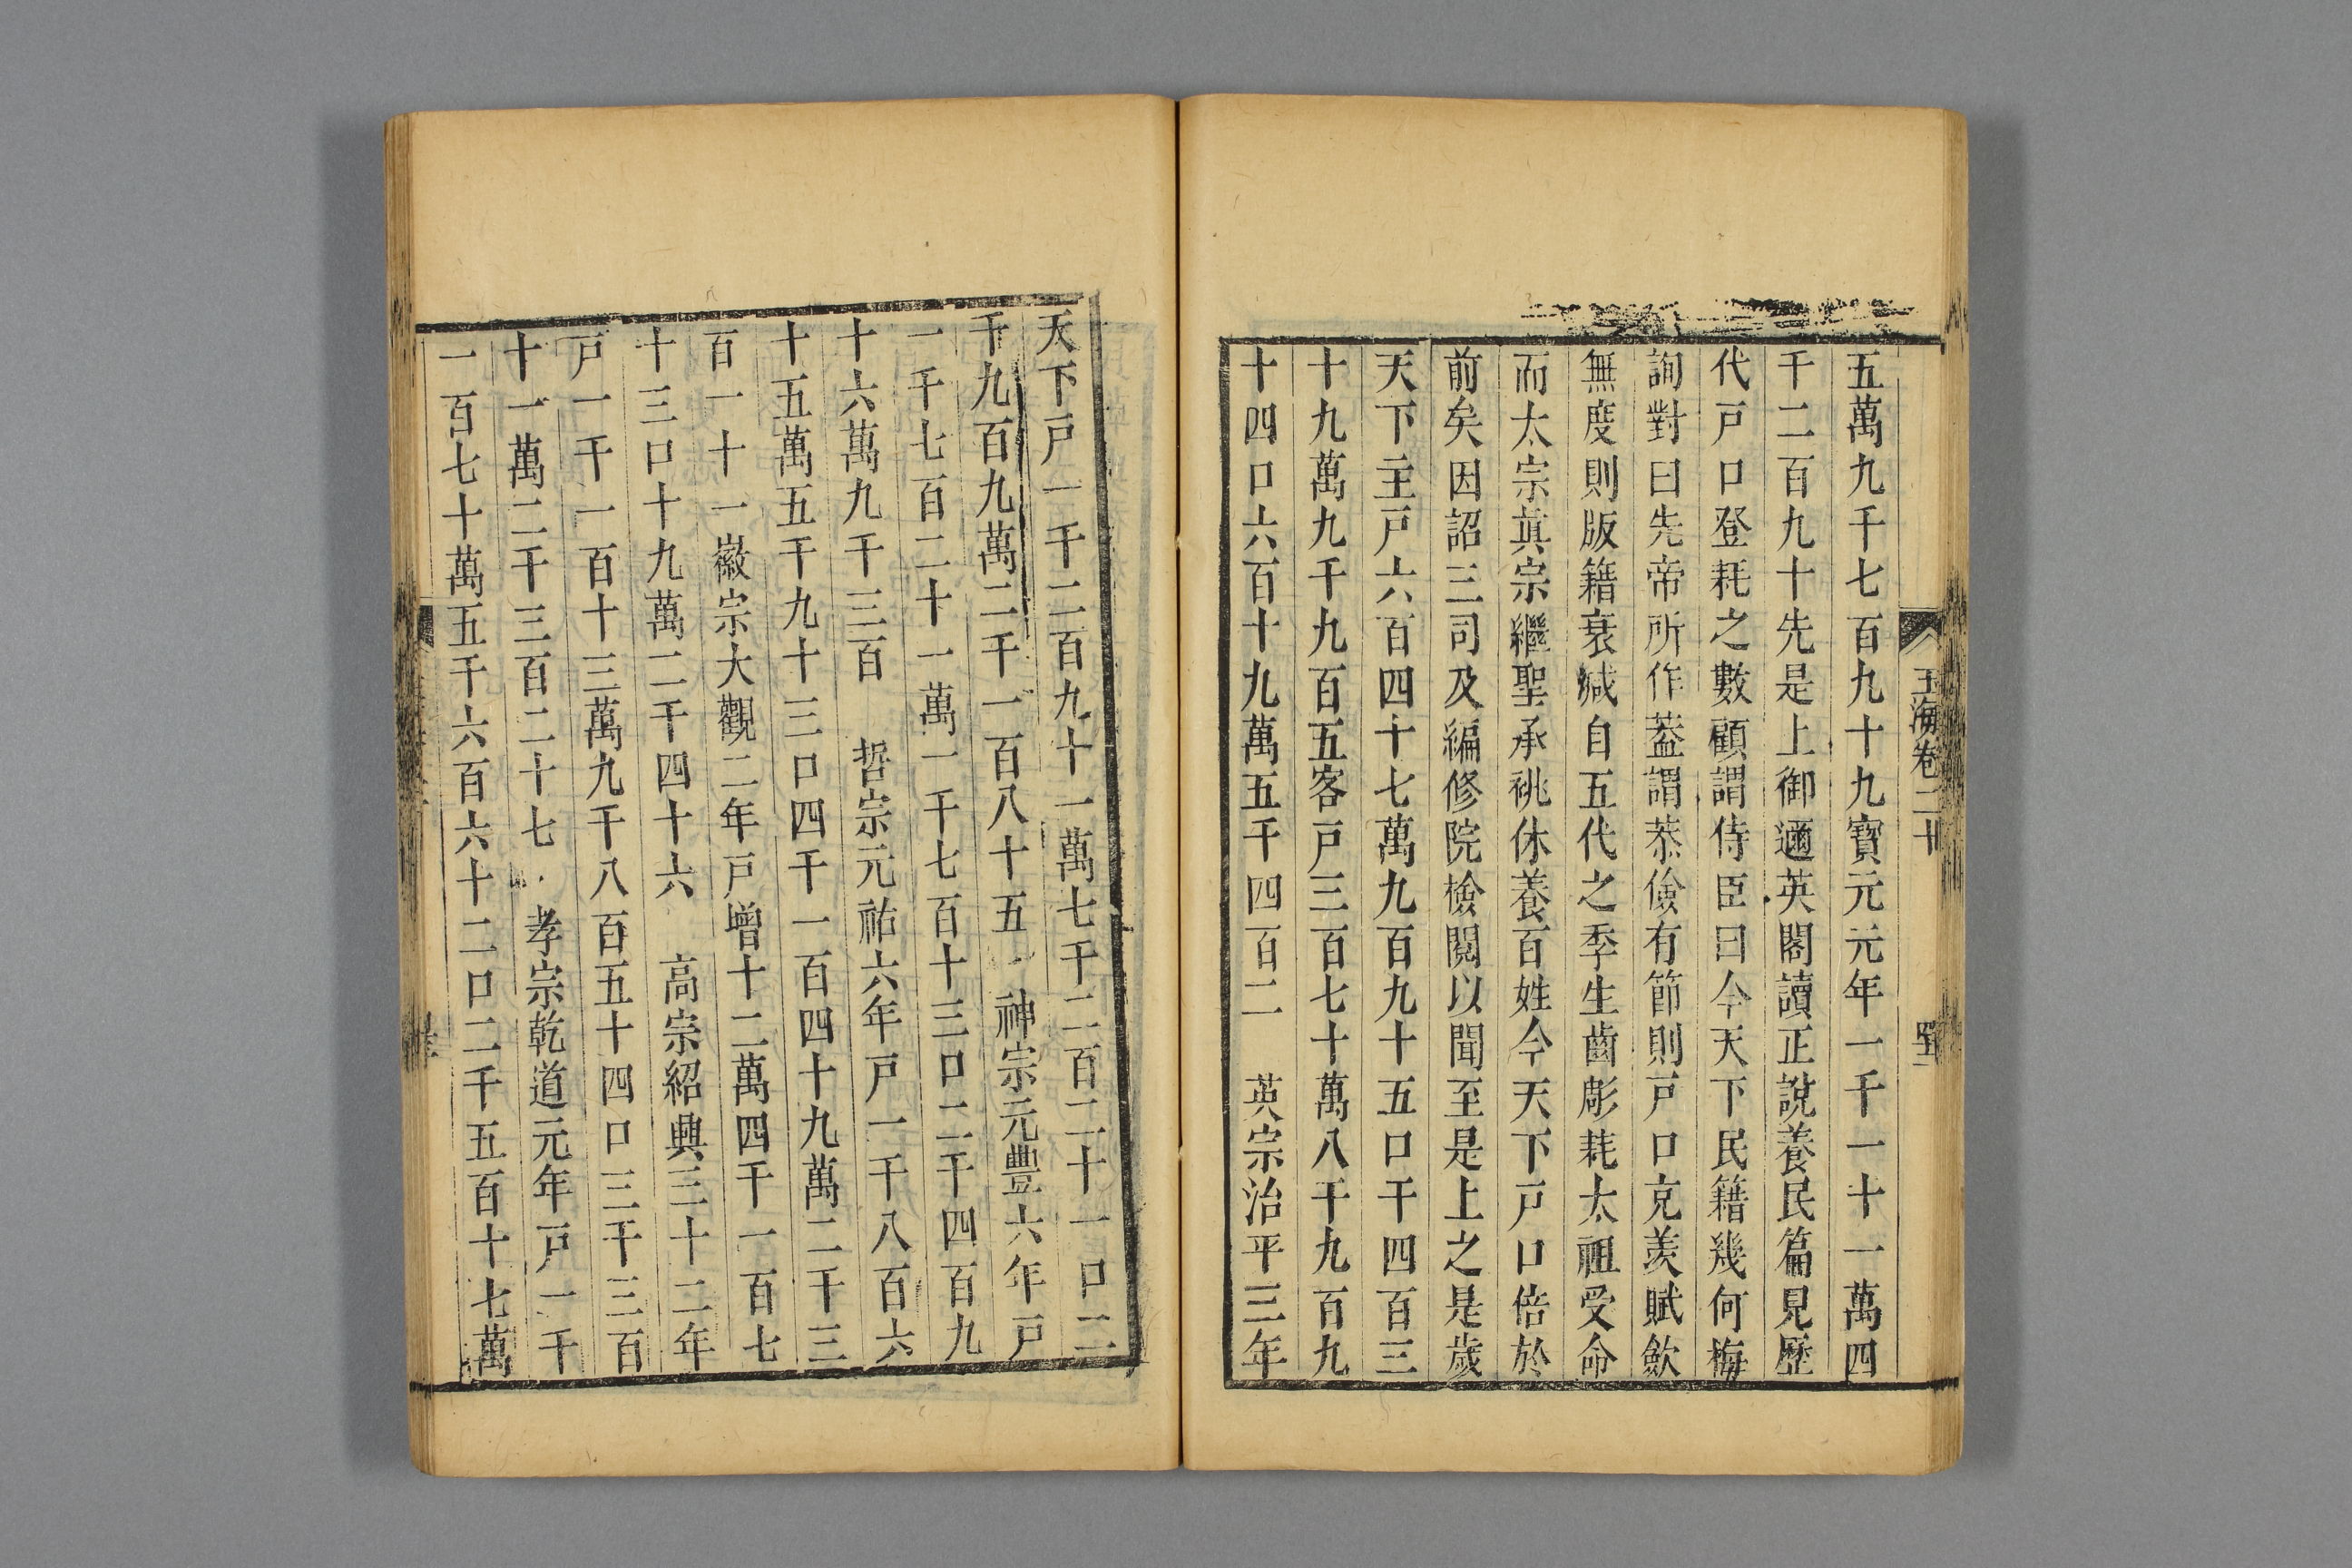 五萬九千七百九十九寶元元年一千一十一萬四
千二百九十先是上御邇英閣讀正說養民篇見歷
代戸口登耗之數顧謂侍臣曰今天下民籍幾何梅
詢對曰先帝所作葢謂恭儉有節則戸口充羨賦歛
無度則版籍衰減自五代之季生齒彫耗太祖受命
而太宗真宗繼聖承祧休養百姓今天下戸口倍於
前矣因詔三司及編修院檢閱以聞至是上之是歲
天下主戸六百四十七萬九百九十五口千四百三
十九萬九千九百五客戸三百七十萬八千九百九
十四口六百十九萬五千四百二　英宗治平三年
天下戸一千二百九十一萬七千二百二十一口二
千九百九萬二千一百八十五　神宗元豐六年戸
一千七百二十一萬一千七百十三口二千四百九
十六萬九千三百　哲宗元祐六年戸一千八百六
十五萬五千九十三口四千一百四十九萬二千三
百一十一徽宗大觀二年戸增十二萬四千一百七
十三口十九萬二千四十六　高宗紹興三十二年
戸一千一百十三萬九千八百五十四口三千三百
十一萬二千三百二十七　孝宗乾道元年戸一千
一百七十萬五千六百六十二口二千五百十七萬
玉海卷二十